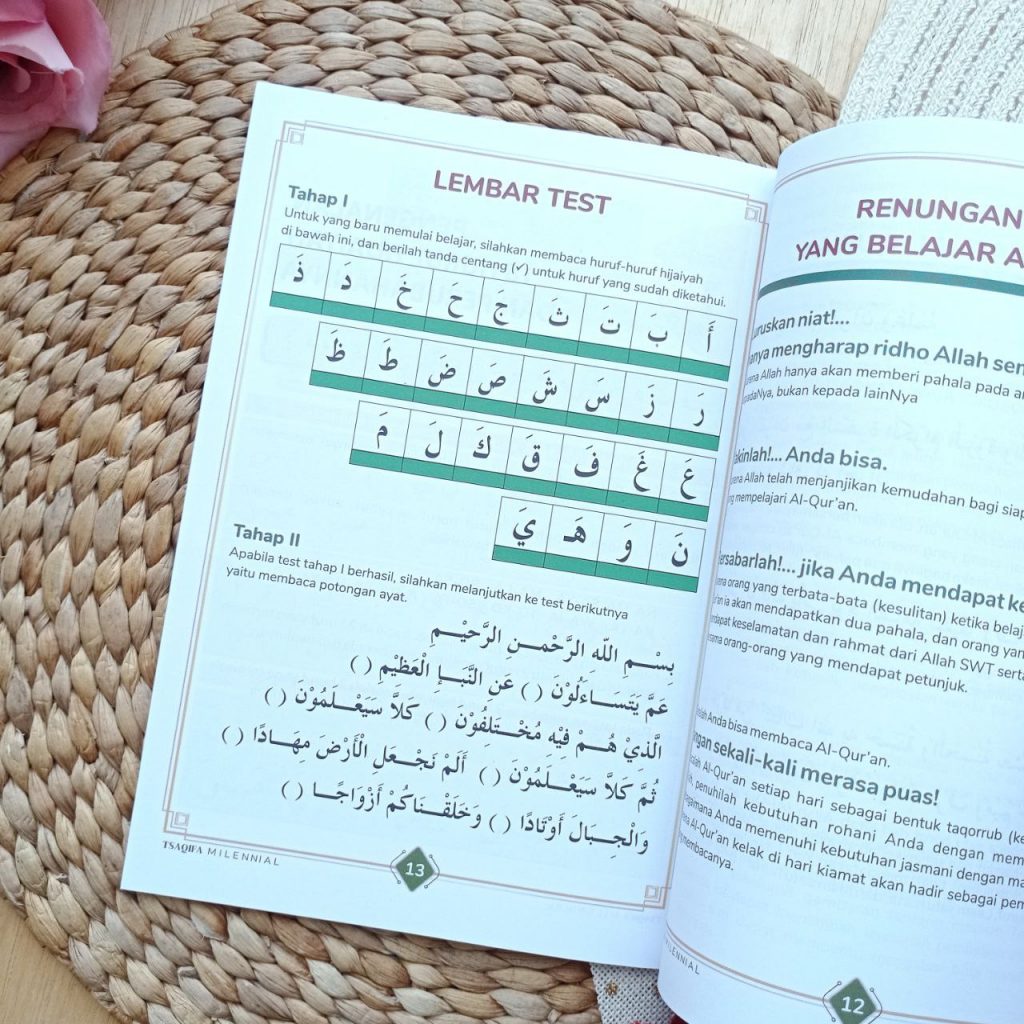 LEMBAR TEST
Tahap I
Untuk yang baru memulai belajar, silahkan membaca huruf-huruf hijaiyah
di bawah ini, dan berilah tanda centang (✓) untuk huruf yang sudah diketahui.
أَ بَ تَ ثَ جَ حَ خَ دَ ذَ
رَ زَ سَ شَ صَ ضَ طَ ظَ
عَ غَ فَ قَ كَ لَ مَ
نَ وَ هَـ يَ
Tahap II
Apabila test tahap I berhasil, silahkan melanjutkan ke test berikutnya
yaitu membaca potongan ayat.
بِسْــمِ اللّٰهِ الرَّحْمٰـنِ الرَّحِيْــمِ
عَمَّ يَتَسَــاءَلُوْنَ ( ) عَنِ النَّبَــإِ الْعَظِيْمِ ( )
الَّذِيْ هُــمْ فِيْهِ مُخْــتَلِفُوْنَ ( ) كَلاَّ سَيَعْــلَمُوْنَ ( )
ثُمَّ كَلاَّ سَيَعْــلَمُوْنَ ( ) أَلَمْ نَجْــعَلِ الْأَرْضَ مِهَــادًا ( )
وَالْجِــبَالَ أَوْتَادًا ( ) وَخَلَقْــنَاكُمْ أَزْوَاجًــا ( )
TSAQIFA MILENNIAL
13
RENUNGAN
YANG BELAJAR
niat!...
mengharap ridho Allah
Allah hanya akan memberi pahala pada
bukan kepada lainNya
Anda bisa.
Allah telah menjanjikan kemudahan bagi
mempelajari Al-Qur'an.
jika Anda mendapat
orang yang terbata-bata (kesulitan) ketika
ia akan mendapatkan dua pahala, dan orang
keselamatan dan rahmat dari Allah SWT
orang-orang yang mendapat petunjuk.
Anda bisa membaca Al-Qur'an.
sekali-kali merasa puas!
Al-Qur'an setiap hari sebagai bentuk taqorrub
penuhilah kebutuhan rohani Anda dengan
Anda memenuhi kebutuhan jasmani dengan
Al-Qur'an kelak di hari kiamat akan hadir sebagai
membacanya.
12